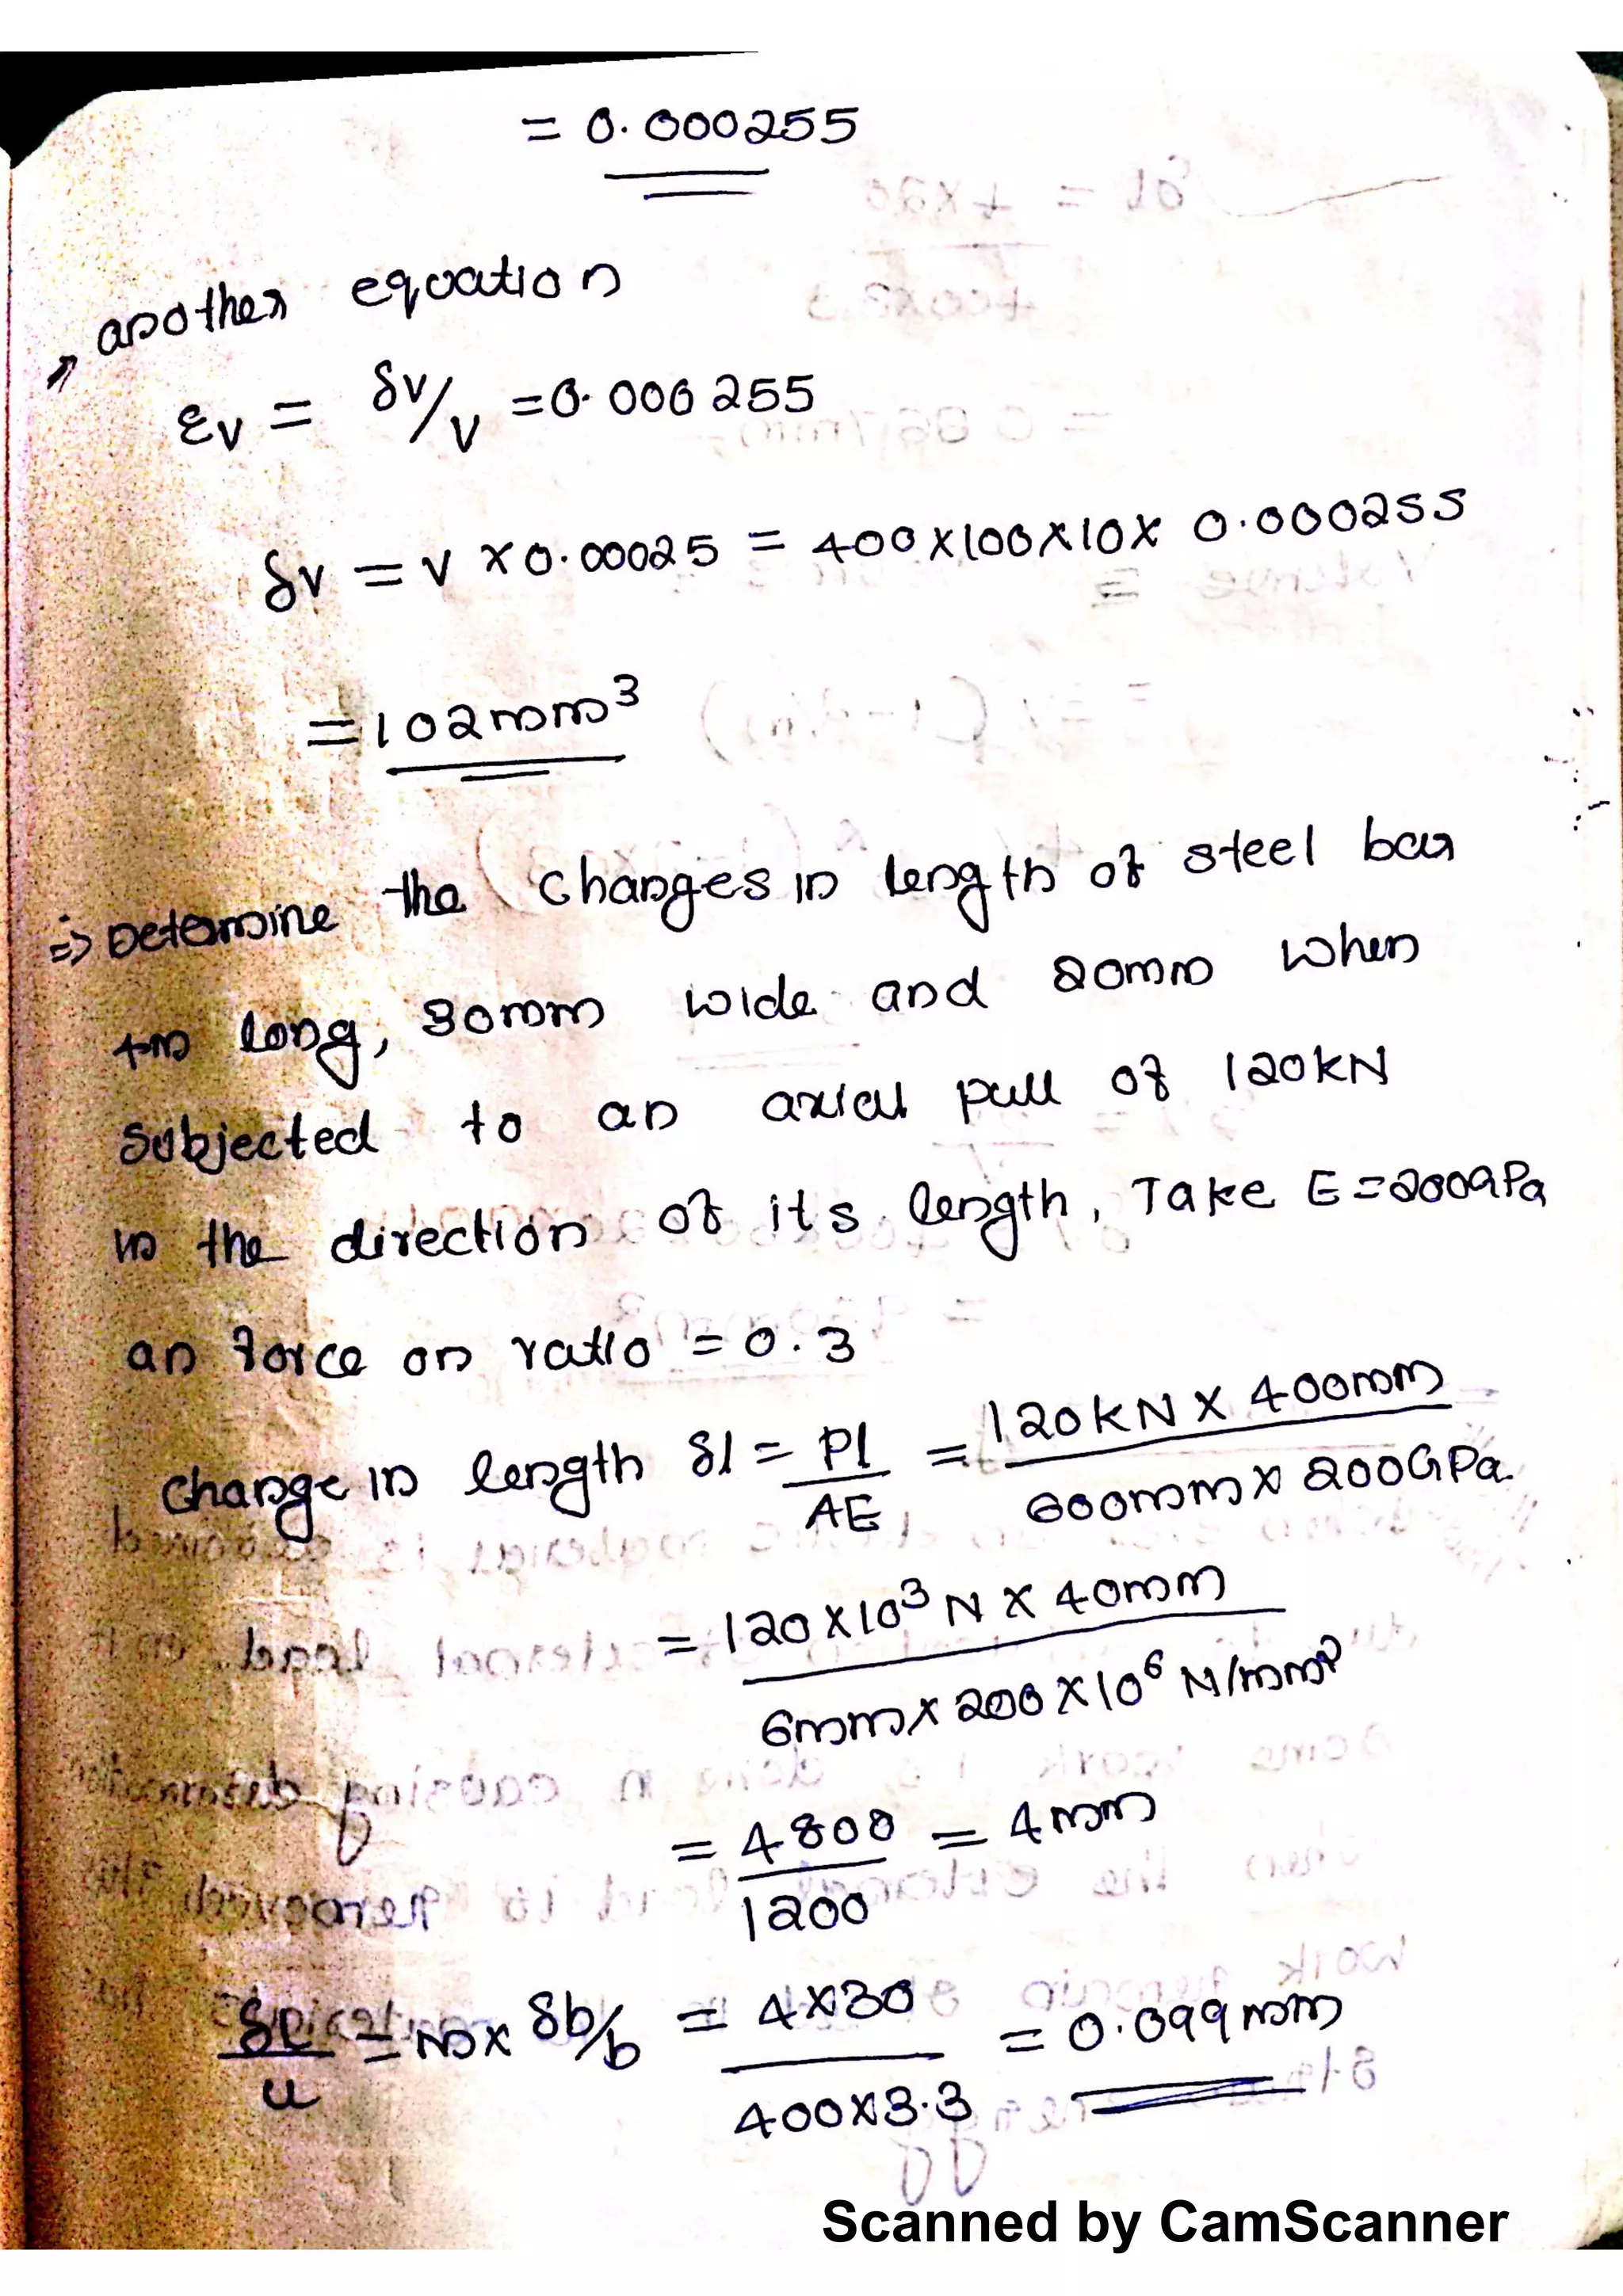 = 0.000255
another equation
εv = δv/v = 0.000255
δv = v × 0.00025 = 400×100×10× 0.000255
= 102mm³
⇒ Determine the changes in length of steel bar
4m long, 30mm wide and 20mm when
subjected to an axial pull of 120kN
in the direction of its length, Take E=200GPa
an force on ratio = 0.3
change in length δl = Pl/AE = 120kN × 400mm / 600mm × 200GPa.
= 120×10³ N × 40mm / 6mm × 200×10⁶ N/mm²
= 4800/1200 = 4mm
= m× δb/b = 4×30 / 400×3.3 = 0.099mm
Scanned by CamScanner